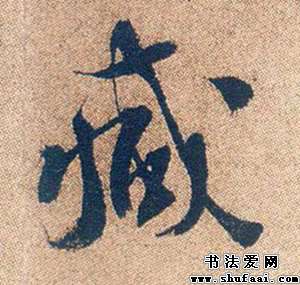 藏
书法爱网
www.shufaai.com